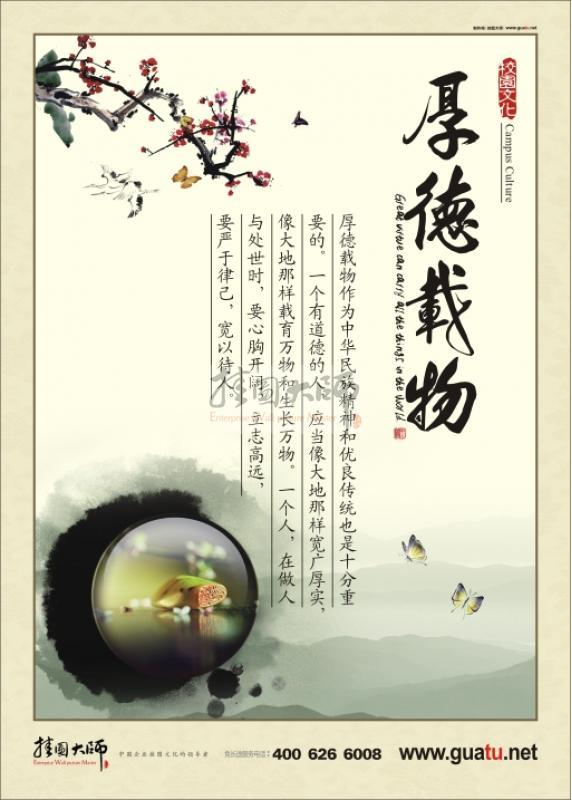 www.guatu.net
校园文化
Campus Culture
厚德载物
Great virtue can carry all the things in the world
厚德载物作为中华民族精神和优良传统也是十分重
要的。一个有道德的人,应当像大地那样宽广厚实,
像大地那样载育万物和生长万物。一个人,在做人
与处世时,要心胸开阔,立志高远,
要严于律己,宽以待人。
挂图大师
Enterprise Wall picture Master
挂图大师
Enterprise Wall picture Master
中国企业挂图文化的领导者
400 626 6008
www.guatu.net